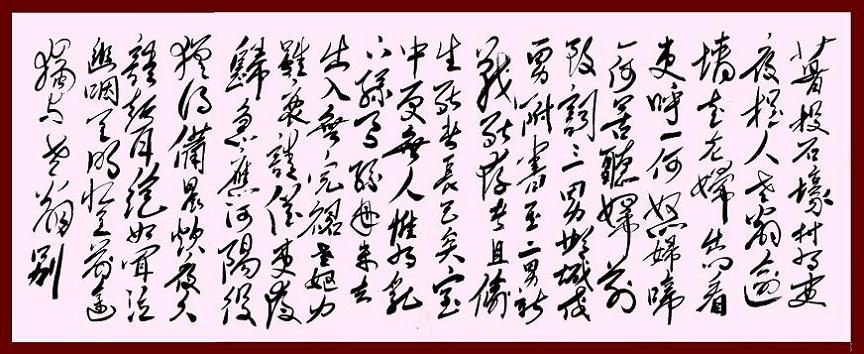 暮投石壕村有吏
夜捉人老翁逾
墙走老婦出門看
吏呼一何怒婦啼
一何苦聽婦前
致詞三男鄴城戍
男附書至二男新
戰死存者且偷
生死者長已矣室
中更無人惟有乳
下孫有孫母未去
出入無完裙老嫗力
雖衰請從吏夜
歸急應河陽役
猶得備晨炊夜久
語聲絕如聞泣
幽咽天明登前途
獨与老翁別